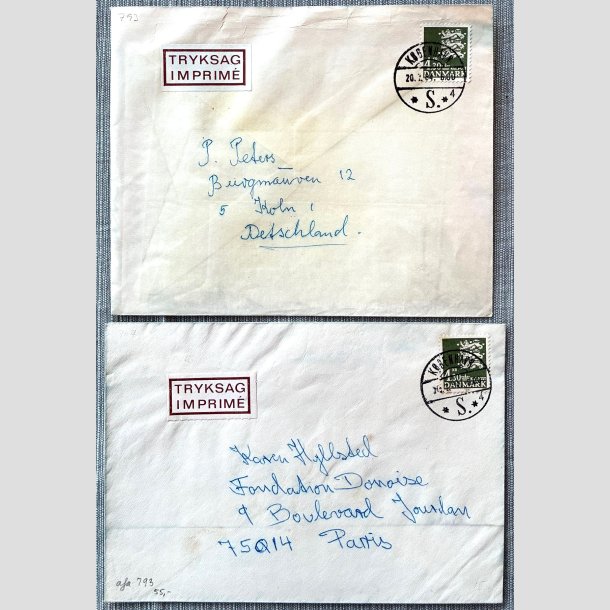 753
TRYKSAG
IMPRIMÉ
KØBENHAVN
DANMARK
* S. * 4
P. Peters
Burgmauven 12
5 Koln 1
Detschland.
TRYKSAG
IMPRIMÉ
KØBENHAVN
DANMARK
* S. * 4
Karen Hyllsted
Fondation Danoise
9 Boulevard Jourdan
75014 Paris
afa 793
55,-